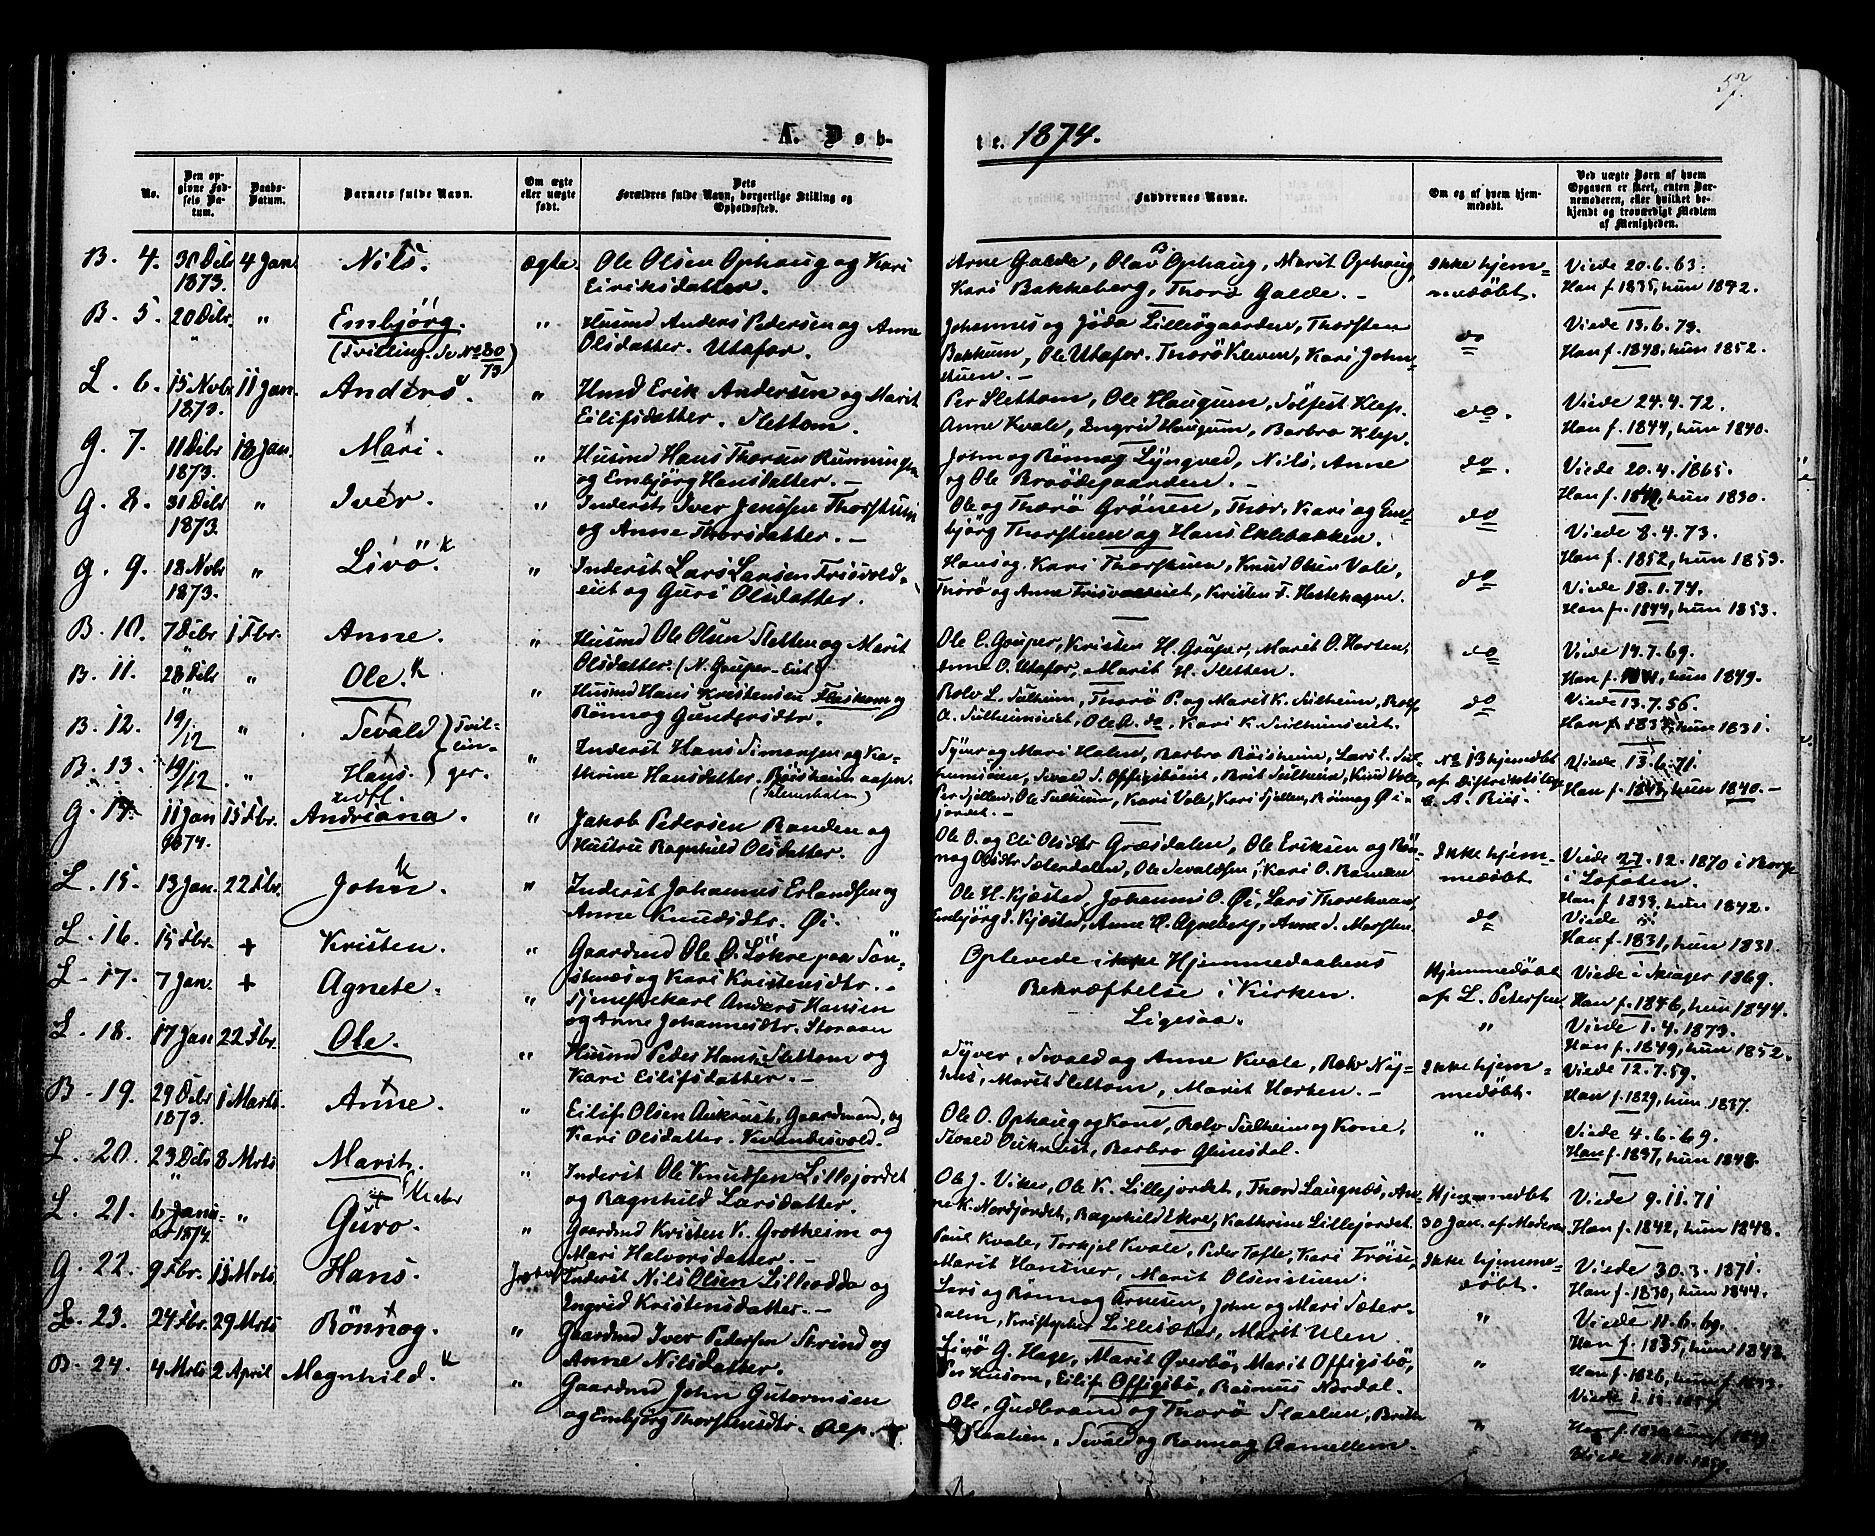 57.
A. Døb-
te. 1874.
No.
Den op-
givne Fød-
sels Da-
tum.
Daabs-
Datum.
Barnets fulde Navn.
Om ægte
eller uægte
født.
Dets
Forældres fulde Navn, borgerlige Stilling og
Opholdssted.
Faddernes Navne.
Om og af hvem hjem-
medøbt.
Ved uægte Børn af hvem
Opgaven er skeet, enten Bar-
nemoderen, eller hvilket be-
kjendt og troværdigt Medlem
af Menigheden.
B. 4. 30 Debr 1873. 4 Jan. Nils. ægte. Ole Olsen Ophaug og Kari
Eiriksdatter.
Arne Galde, Olav Ophaug, Marit Ophaug,
Kari Bakkeberg, Thorø Galde. –
Ikke hjem=
medøbt.
Viede 20.6.63.
Han f. 1835, hun 1842.
B. 5. 20 Debr. " Embjörg.
(Tvilling. Se No 80/73)
" Husmd Anders Pedersen og Anne
Olsdatter. Utafor.
Johannes og Jøda Lillesøgaarden, Thorsten
Bakkum, Ole Utafor. Thorø Kleven, Kari John-
stuen. –
do
Viede 13.6.73.
Han f. 1848, hun 1852.
L. 6. 15 Novbr 1873. 11 Jan. Anders. " Husmd Erik Andersen og Marit
Eilifsdatter. Slettom.
Per Slettom, Ole Haugum, Sølfest Klep.
Anne Kvale, Ingrid Haugum, Barbro Klep.
do.
Viede 24.4.72.
Han f. 1844, hun 1840.
G. 7. 11 Debr 1873. 18 Jan. Mari. " Husmd Hans Thorsen Runningen
og Embjørg Hansdatter. –
John og Rønnog Lyngved, Nils, Anne
og Ole Brødegaarden. –
do.
Viede 20.4.1865.
Han f. 1842, hun 1830.
G. 8. 31 Debr 1873. " Iver. " Inderst Iver Jensen Thorstuen
og Anne Thorsdatter. –
Ole og Thorø Grönen, Thor, Kari og Em-
bjørg Thorstuen og Hans Eklebakken.
do
Viede 8.4.73.
Han f. 1852, hun 1853.
G. 9. 18 Novbr 1873. " Livö. " Inderst Lars Larsen Frisvold-
eiet og Guri Olsdatter.
Hans og Kari Thorstuen, Knud Olsen Vole,
Thorø og Anne Frisvoldeiet, Kristen F. Hestehagen.
do
Viede 18.1.74.
Han f. 1844, hun 1853.
B. 10. 7 Debr " 1 Fbr. Anne. " Husmd Ole Olsen Sletten og Marit
Olsdatter. (N. Gruper-Eie)
Ole C. Gruper, Kristen H. Gruper, Marit O. Horten,
Anne O. Utafor, Marit H. Sletten.
do
Viede 14.7.69.
Han f. 1841, hun 1849.
B. 11. 28 Debr " " Ole. " Husmd Hans Kristensen Flaskem og
Rönnog Gundersdtr.
Rolv L. Sulheim, Thorø P. og Marit K. Sulheim, Rolf
A. Sulheimseiet, Ole O. do, Kari K. Sulheimseiet.
do
Viede 13.7.56.
Han f. 1832, hun 1831.
B. 12. 19/12 " Sevald } Tvil-
B. 13. 19/12 " Hans. } linger.
" Inderst Hans Simonsen og Ka-
thrine Hansdatter. Røisheim aasen
Syver og Mari Holen, Barbro Røisheim, Lars L. Sul-
heimseiet, Sevald S. Offigsbøeiet, Brit Sulheim, Knud Vole,
Per Fjellen, Ole Sulheim, Kari Vole, Kari Fjellen, Rønnog Øi-
jordet. –
No 13 hjemdøbt
af Distriktslæge
C. A. Riis.
Viede 13.6.71.
Han f. 1843, hun 1840. –
G. 14. 11 Jan 1874. 15 Fbr. Andriana. " Jakob Pedersen Randen og
Hustru Ragnhild Olsdatter.
Ole O. og Eli Olsdtr Græsdalen, Ole Eriksen og Røn-
nog Olsdtr Sælendalen, Ole Sevaldsen, Kari O. Randen
Ikke hjem=
medøbt
Viede 27.12.1870 i Borge
i Lofoten.
Han f. 1839, hun 1842.
L. 15. 13 Jan. 22 Fbr. John. " Inderst Johannes Erlandsen og
Anne Knudsdtr. Øi.
Ole H. Kjæstad, Johannes O. Øi, Lars Thorekvam,
Embjørg d. Kjæstad, Anne H. Agneberg, Anne S. Marsten.
do
Viede
Han f. 1831, hun 1831.
L. 16. 15 Fbr. + Kristen. " Gaardmd Ole O. Løkre paa Søn-
stenæs og Kari Kristensdtr. –
Oplevede ikke Hjemmedaabens
Bekræftelse i Kirken.
Hjemmedøbt
af L. Petersen
Viede i Skiager 1869.
Han f. 1846, hun 1844.
L. 17. 7 Jan. + Agnete. " Tjenestekarl Anders Hansen
og Anne Johannesdtr. Storaaen
Ligesaa.
"
Viede 1.4.1873.
Han f. 1849, hun 1852.
L. 18. 17 Jan 22 Fbr. Ole. " Husmd Peder Hans. Slettom og
Kari Eilifsdatter. –
Syver, Sevald og Anne Kvale, Rolv Nøj-
hus, Marit Slettom, Marit Horten. –
Ikke hjem=
medøbt.
Viede 12.7.59.
Han f. 1829, hun 1837.
B. 19. 29 Debr 1873. 1 Marts. Anne. " Eilif Olsen Aukrust, Gaardmand, og
Kari Olsdatter. Kvandesvold.
Ole O. Ophaug og Kone, Rolv Sulheim og Kone,
Sevald Aukrust, Barbro Glimsdal.
"
Viede 4.6.69.
Han f. 1837, hun 1848.
L. 20. 23 Debr " 8 Mrts Marit. " Inderst Ole Knudsen Lillejordet
og Ragnhild Larsdatter.
Ole J. Viker, Ole K. Lillejordet, Thord Laugnæs, An-
ne K. Nordjordet, Ragnhild Ekre, Kathrine Lillejordet.
Hjemmedøbt
30 Jan. af Moderen
Viede 9.11.71
Han f. 1842, hun 1848.
L. 21. 6 Janu- ar 1874. " Guro. " Gaardmd Kristen K. Grotheim og
Mari Halvorsdatter. –
Paul Kvale, Torkjel Kvale, Peder Tofte, Kari Trøise,
Marit Hansner, Marit Olsenstuen.
Ikke hjemme=
døbt.
Viede 30.3.1871.
Han f. 1830, hun 1844.
G. 22. 9 Fbr. 15 Mrts. Hans. Inderst Nils Olsen Lillevodda og
Ingrid Kristensdatter. –
Lars og Rønnog Arnesen, John og Mari Sæter-
dalen, Kristopher Lillesæter, Marit Ulen.
"
Viede 11.6.69.
Han f. 1835, hun 1843.
L. 23. 24 Fbr. 29 Mrts Rönnog. " Gaardmd Iver Pedersen Skrind og
Anne Nilsdatter.
Livø G. Hage, Marit Øverbø, Marit Offigsbø,
Per Husom, Eilif Offigsbø, Rasmus Nordal.
"
Han f. 1826, hun f. 1833.
B. 24. 4 Mrts 2 April Magnhild. " Gaardmd John Guttormsen
og Embjørg Thorstensdtr. Rep.
Ole, Gudbrand og Thorø Slaalien, Brit
Slaalien, Sevald og Rønnog Aamellem.
"